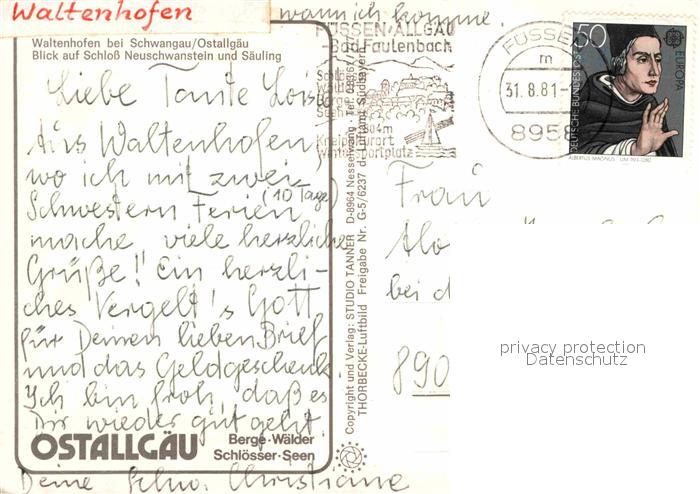 Waltenhofen
wann ich komme.
Waltenhofen bei Schwangau/Ostallgäu
Blick auf Schloß Neuschwanstein und Säuling
Liebe Tante Loisl
Aus Waltenhofen,
wo ich mit zwei
Schwestern Ferien (10 Tage)
mache viele herzliche
Grüße! Ein herzli-
ches Vergelt's Gott
für Deinen lieben Brief
und das Geldgeschenk.
Ich bin froh, daß es
Dir wieder gut geht.
OSTALLGÄU
Berge·Wälder
Schlösser·Seen
Deine Schw. Christiane
Copyright und Verlag: STUDIO TANNER D-8964 Nesselwang · Tel.
THORBECKE-Luftbild Freigabe Nr. G-5/6237
FÜSSEN-ALLGÄU
Bad Faulenbach
Seen
804m
Kneippkurort
Wintersportplatz
FÜSSEN
m
31.8.81-
895
50
DEUTSCHE BUNDESPOST
EUROPA
ALBERTUS MAGNUS UM 1193-1280
Frau
Alo
bei d
890
privacy protection
Datenschutz